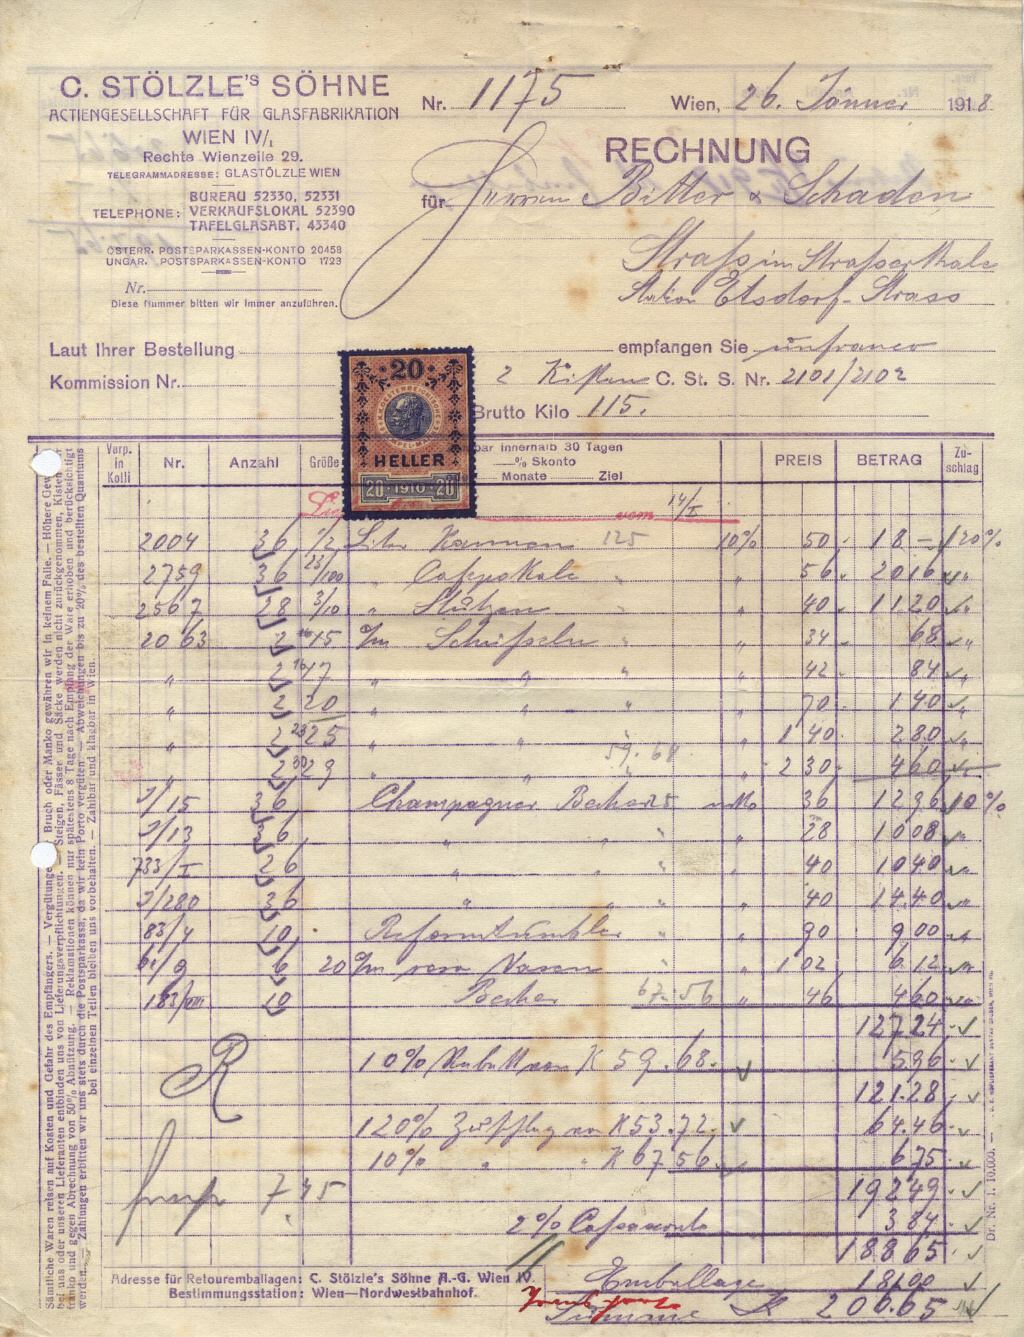 C. STÖLZLE'S SÖHNE
ACTIENGESELLSCHAFT FÜR GLASFABRIKATION
WIEN IV/1
Rechte Wienzeile 29.
TELEGRAMMADRESSE: GLASTÖLZLE WIEN
TELEPHONE: BUREAU 52330, 52331
VERKAUFSLOKAL 52390
TAFELGLASABT. 43340
ÖSTERR. POSTSPARKASSEN-KONTO 20458
UNGAR. POSTSPARKASSEN-KONTO 1723
Nr.
Diese Nummer bitten wir immer anzuführen.
Nr. 1175 Wien, 26. Jänner 1918
RECHNUNG
für Herren Bitter & Schaden
Strass im Strasserthale
Station Etsdorf-Strass
Laut Ihrer Bestellung empfangen Sie unfranco
Kommission Nr. 2 Kisten C. St. S. Nr. 2101/2102
Brutto Kilo 115.
20
HELLER
20 1910 20
Verp. in Kolli Nr. Anzahl Größe bar innerhalb 30 Tagen PREIS BETRAG Zuschlag
% Skonto
Monate Ziel
vom 14/I
2004 36 1/2 Liter Kannen 125 10% 50 18 – 120%
2759 36 25/100 " " " 56 20 16 "
2567 28 3/10 " Stutzen " 40 11.20 "
2063 2 15 c/m Schüsseln " " 34 68 "
" 2 16 17 " " " 42 84 "
" 2 20 " " " 70 1 40 "
" 2 23 25 " " " 1 40 2 80 "
" 2 30 29 " " 59.68 " 2 30 4 60 "
J/15 36 Champagner Becher 25 36 12 96 10%
J/13 36 " " " 28 10 08 "
733/I 26 " " " 40 10 40 "
J/280 36 " " " 40 14.40 "
83/4 10 Reformtumbler " " 90 9 00 "
61/9 6 20 c/m rosa Vasen " 1 02 6 12 "
183/VIII 10 Becher 67.56 " 46 4 60 "
127 24
10% Rabatt von K 59.68. 5 96
121.28
120% Zuschlag von K 53.72. 64.46
10% " " K 67.56 6 75
R
192 49
7.45
2% Cassaconto 3.84
188 65
Emballage 18.00
Summe K 206.65
Adresse für Retouremballagen: C. Stölzle's Söhne A.-G. Wien IV.
Bestimmungsstation: Wien–Nordwestbahnhof.
Sämtliche Waren reisen auf Kosten und Gefahr des Empfängers. — Vergütungen Bruch oder Manko gewähren wir in keinem Falle. — Höhere Gew
bei uns oder unseren Lieferanten entbinden uns von Lieferungsverpflichtungen. — Steigen, Fässer und Säcke werden nicht zurückgenommen, Kisten
franko und gegen Abrechnung von 50% Abnützung. — Reklamationen können nur spätestens 8 Tage nach Empfang der Ware erhoben und berücksichtigt
werden. — Zahlungen erbitten wir uns stets durch die Postsparkassa, da wir kein Porto vergüten. — Abweichungen bis zu 20% des bestellten Quantums
bei einzelnen Teilen bleiben uns vorbehalten. — Zahlbar und klagbar in Wien.
Dr. Nr. 1. 10.000. —